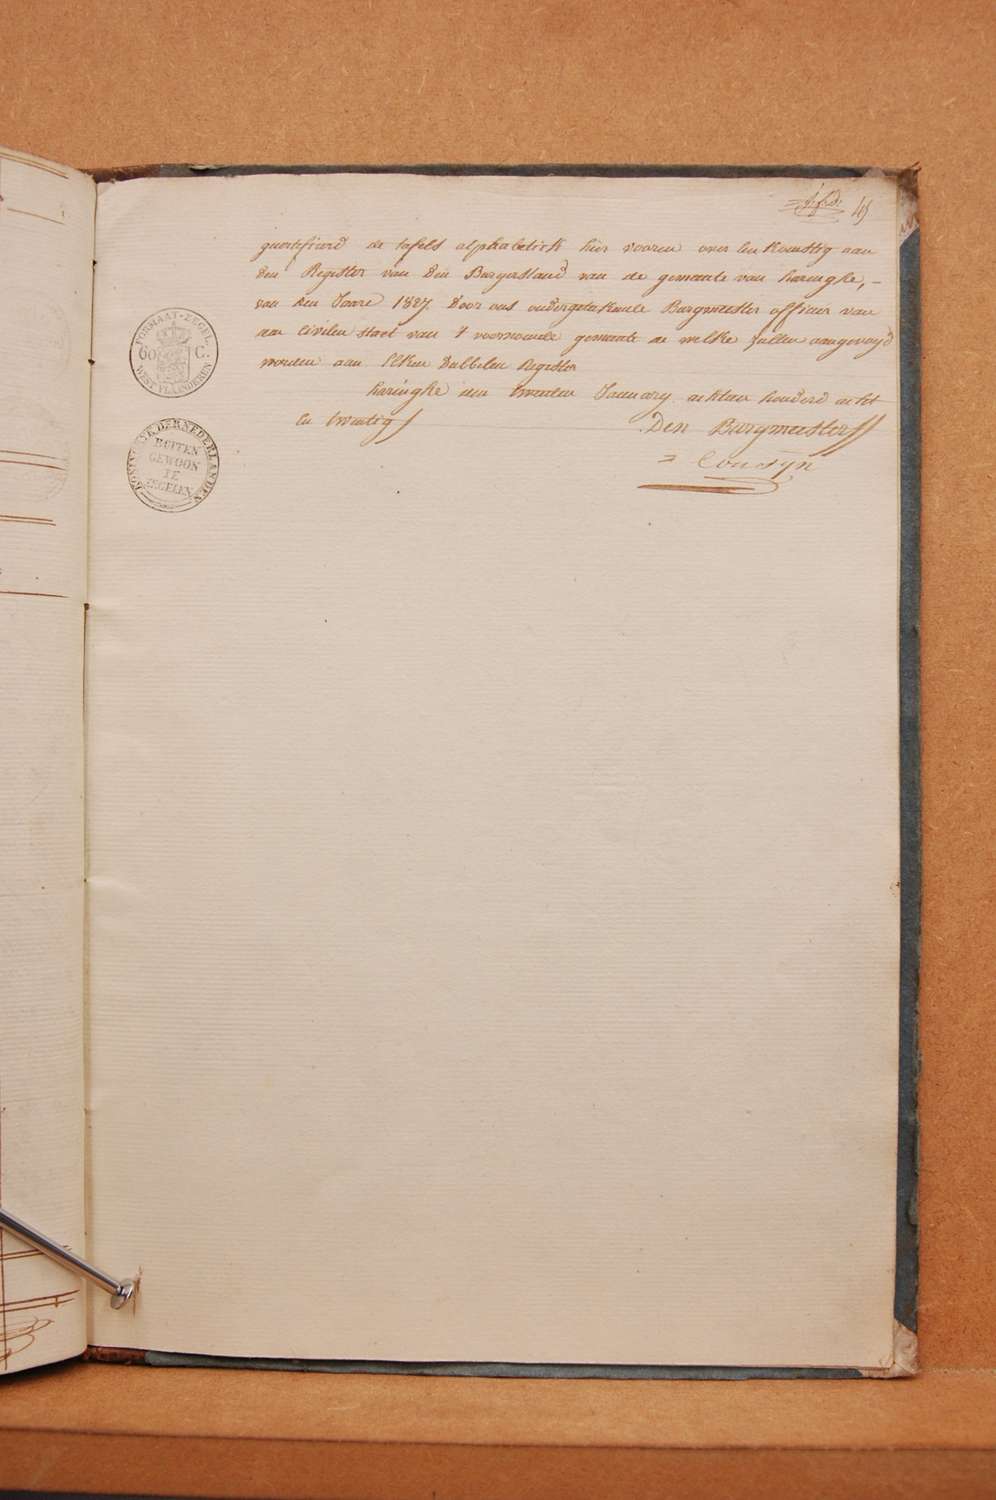 45
quertifierd de tafels alphabetick hier vooren over een komstig aan
den Register van den Burgerstand van de gemeente van haringhe, -
van den Jaare 1827 door ons ondergetekende Burgmeester officier van
den civilen staet van 't voornoemde gemeente de welke zullen aangevoegd
worden aan elken dubbelen Register
haringhe den tweeden January achtien honderd acht
en twentig
Den Burgmeester
= Cousyn
FORMAAT-ZEGEL
60 C.
WEST-VLAANDEREN
KONINGRYK DER NEDERLANDEN
BUITEN
GEWOON
TE
ZEGELEN